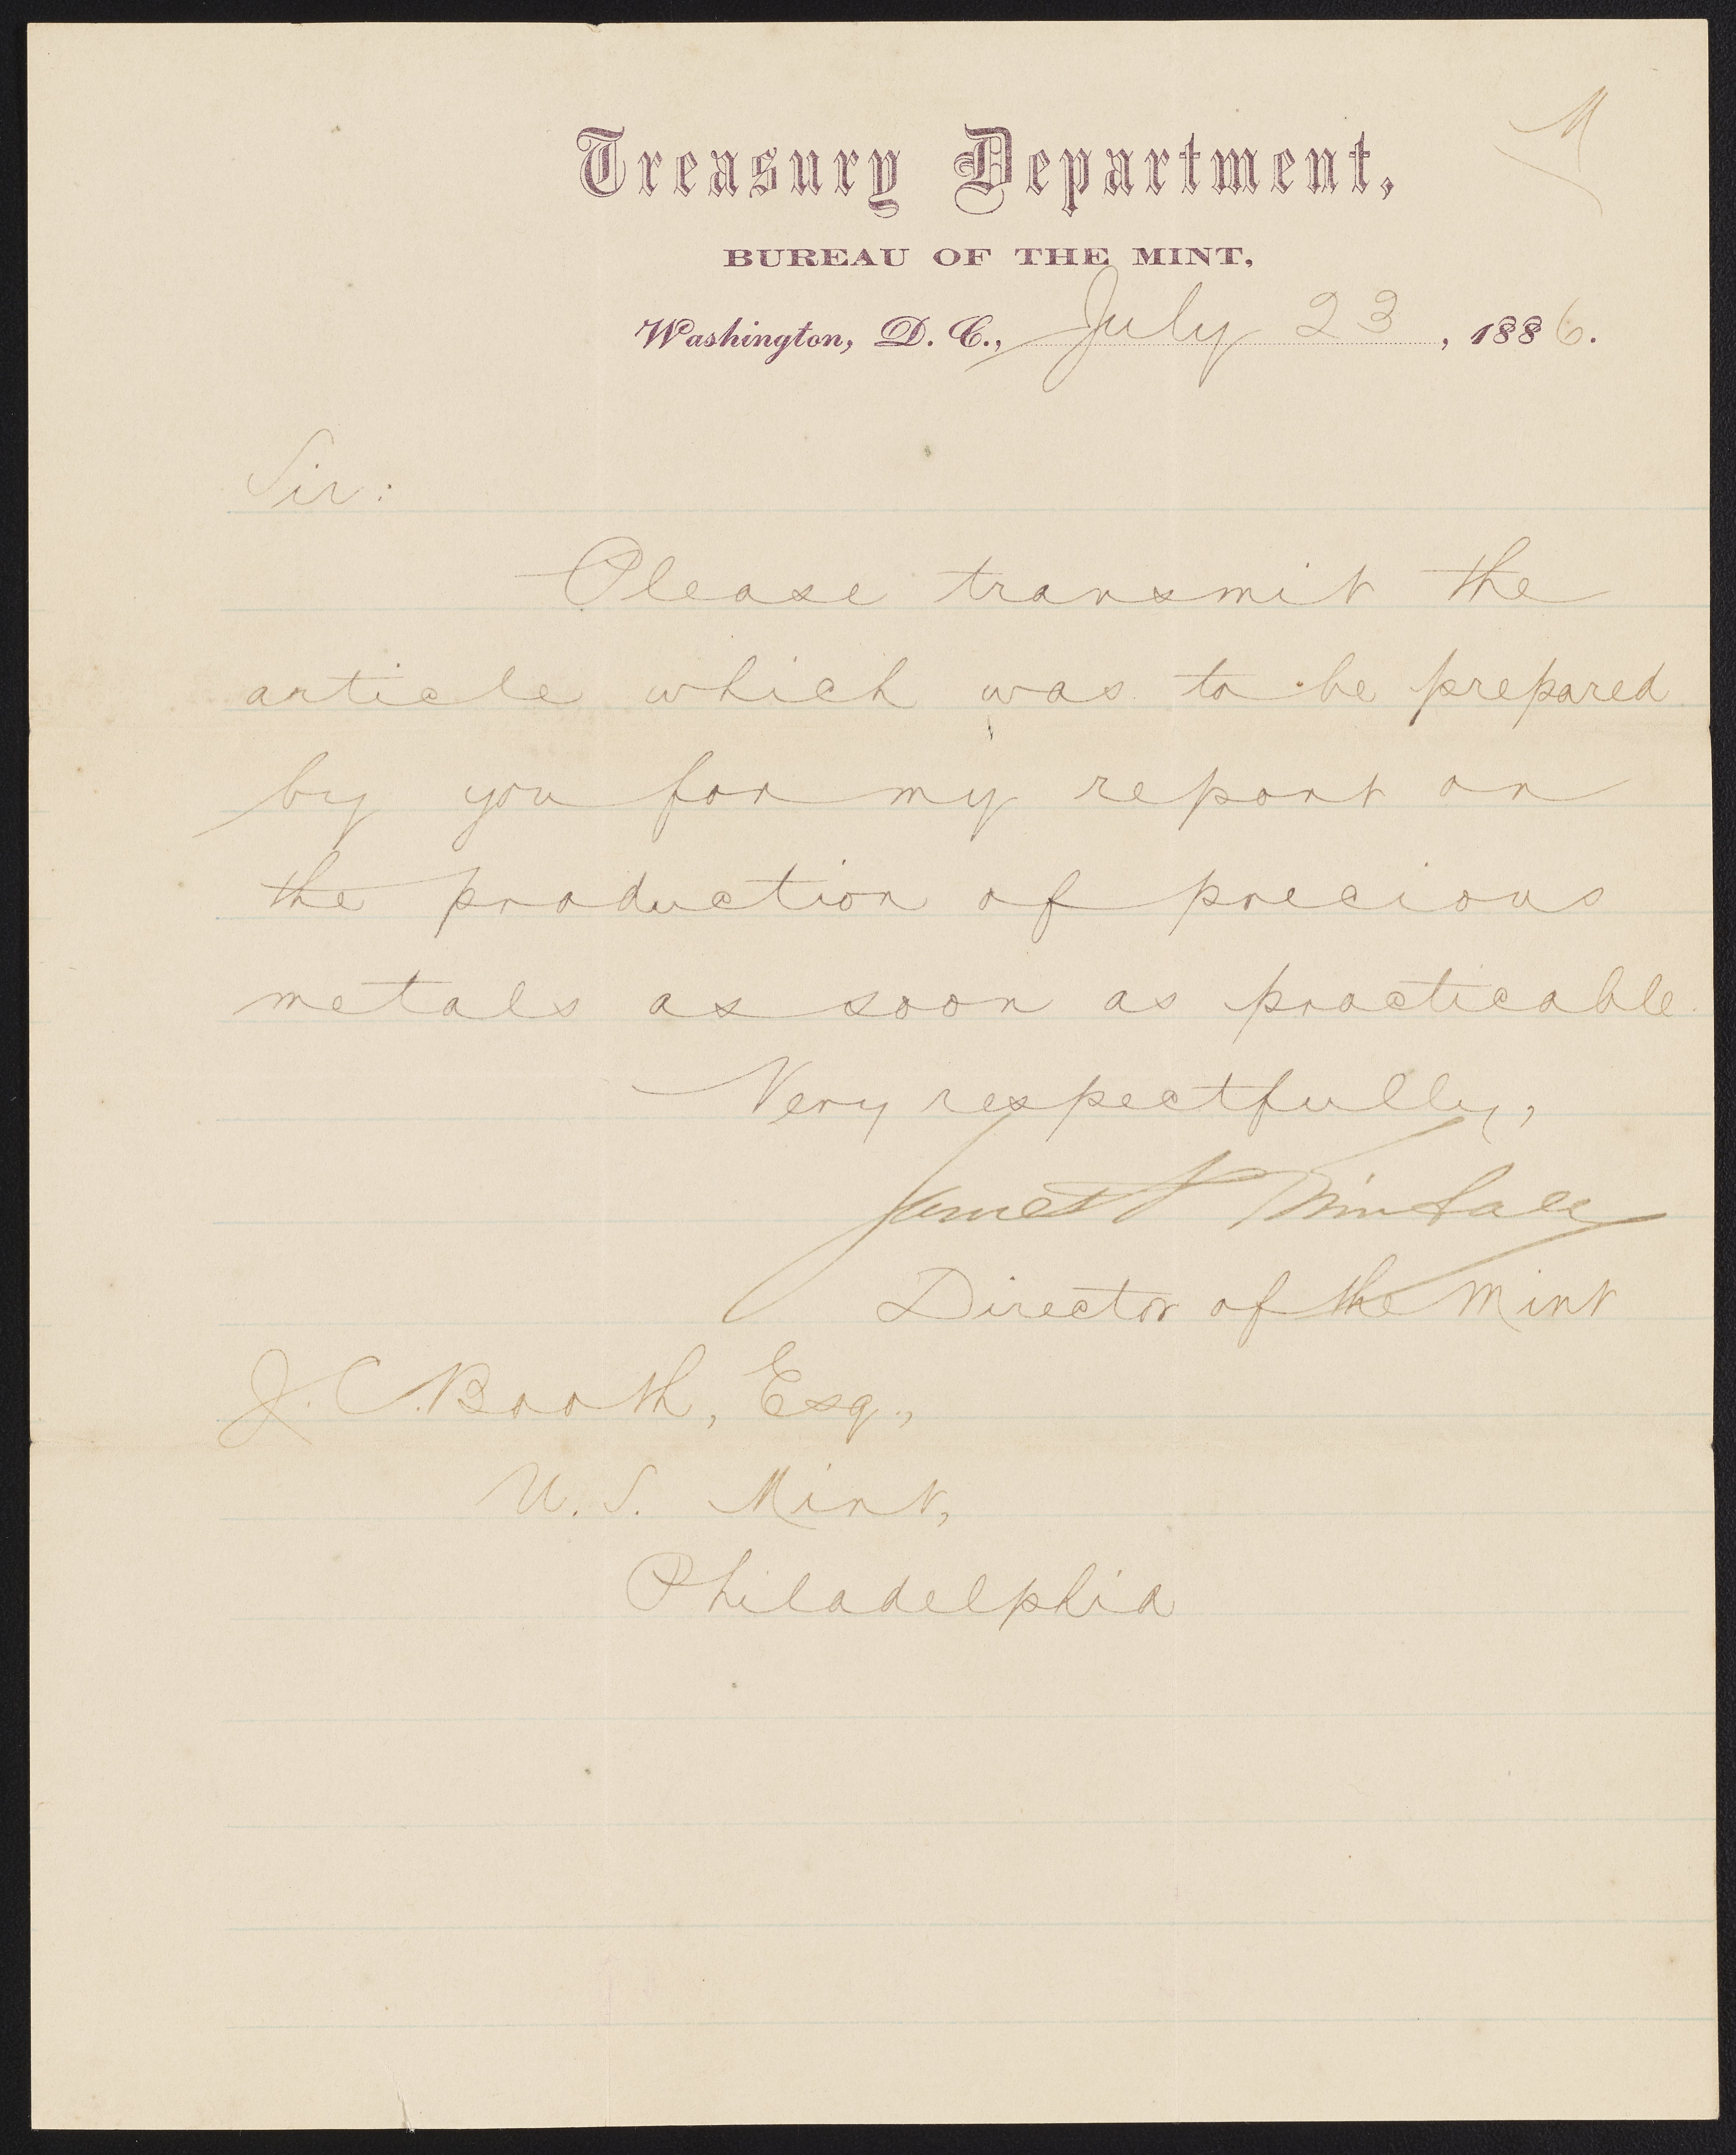 M
Treasury Department,
BUREAU OF THE MINT,
Washington, D. C., July 23, 1886.
Sir:
Please transmit the
article which was to be prepared
by you for my report on
the production of precious
metals as soon as practicable.
Very respectfully,
James P Kimball
Director of the Mint
J. C. Booth, Esq.,
U. S. Mint,
Philadelphia